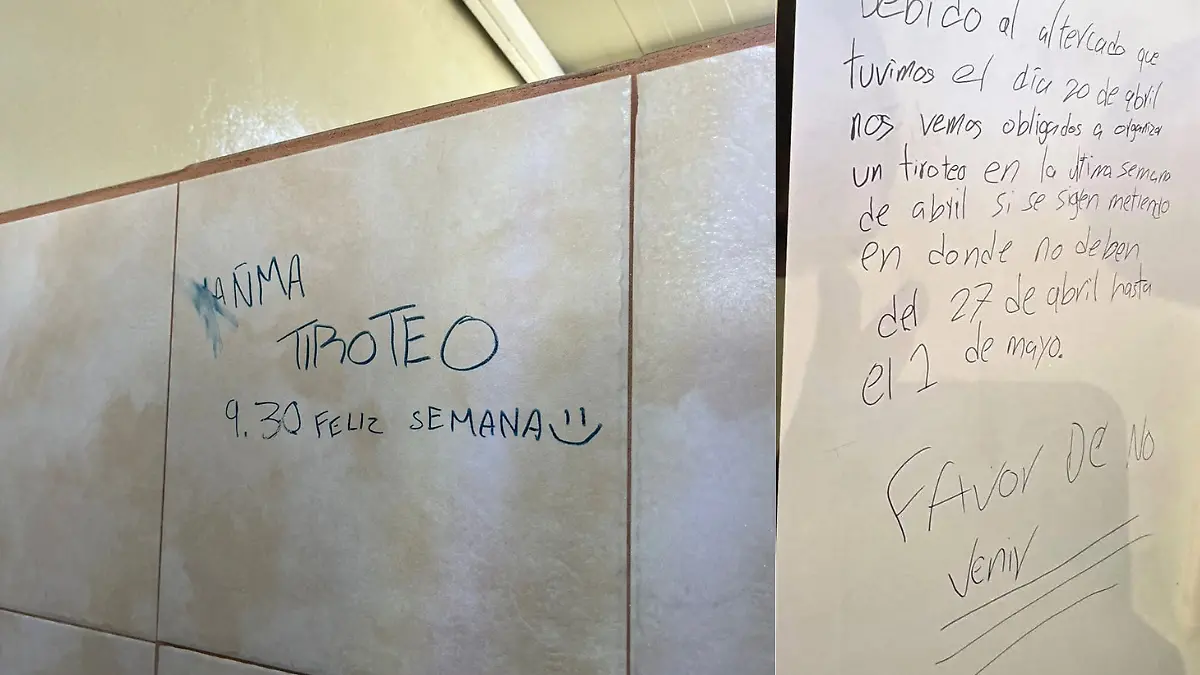 MAÑMA
TIROTEO
9.30 FELIZ SEMANA
DEBIDO al altercado que
tuvimos el día 20 de abril
nos vemos obligados a organizar
un tiroteo en la última semana
de abril si se sigen metiendo
en donde no deben
del 27 de abril hasta
el 1 de mayo.
FAvor DE NO
venir